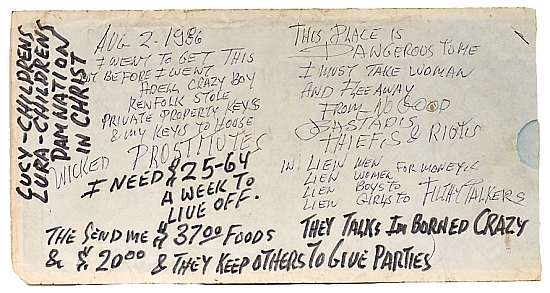 LUCY-CHILDRENS
LURA-CHILDRENS
DAMNATION
IN CHRIST
AUG 2-1986
I WENT TO GET THIS
BUT BEFORE I WENT
ADELL CRAZY BOY
KENFOLK STOLE
PRIVATE PROPERTY KEYS
& MY KEYS TO HOUSE
WICKED PROSTITUTES
I NEED $25-64
A WEEK TO
LIVE OFF.
THE SEND ME $3700 FOODS
& $2000 & THEY KEEP OTHERS TO GIVE PARTIES
THIS PLACE IS
DANGEROUS TO ME
I MUST TAKE WOMAN
AND FLEE AWAY
FROM NO GOOD
BASTADIS
THIEFIS & RIOTIS
IN LIEIN MEN
LIEN WOMEN FOR MONEYIE
LIEN BOYS TO
LIEN GIRLS TO FILTHY TALKERS
THEY TALKS IM BORNED CRAZY